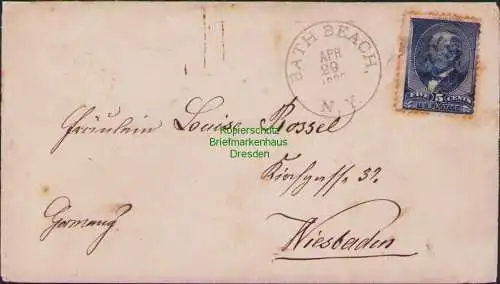 BATH BEACH,
APR
29
N. Y.
FIVE 5 CENTS
Fräulein Louise Rossel
Kopierschutz
Briefmarkenhaus
Dresden
Kirchgasse 32.
Germany
Wiesbaden